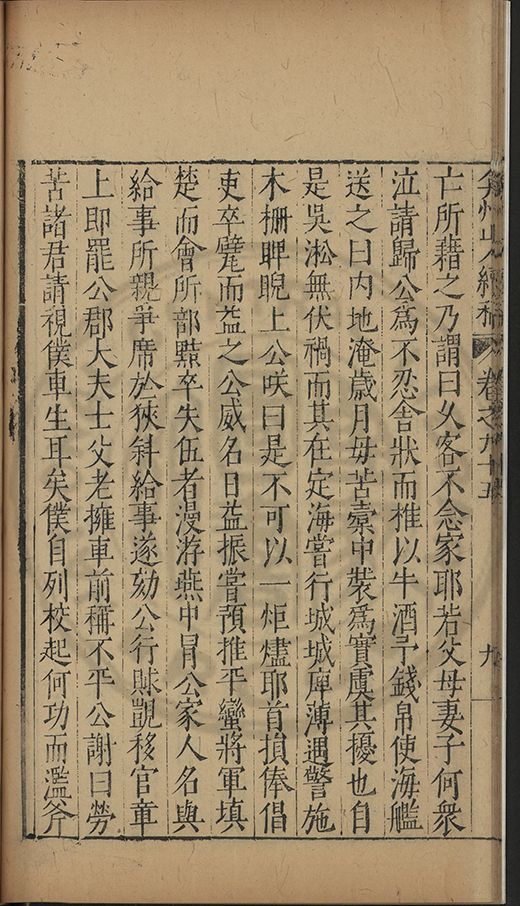 弇州山人續稿 卷之九十五 九
亡所藉之乃謂曰久客不念家耶若父母妻子何衆
泣請歸公為不忍舍狀而椎以牛酒予錢帛使海艦
送之曰内地淹歲月毋苦橐中裝為實虞其擾也自
是吳淞無伏禍而其在定海嘗行城城庳薄遇警施
木柵睥睨上公咲曰是不可以一炬燼耶首損俸倡
吏卒甓而益之公威名日益振嘗預推平蠻將軍填
楚而會所部黥卒失伍者漫游燕中冐公家人名與
給事所親爭席於狹斜給事遂劾公行賕覬移官章
上即罷公郡大夫士父老擁車前稱不平公謝曰勞
苦諸君請視僕車生耳矣僕自列校起何功而濫斧